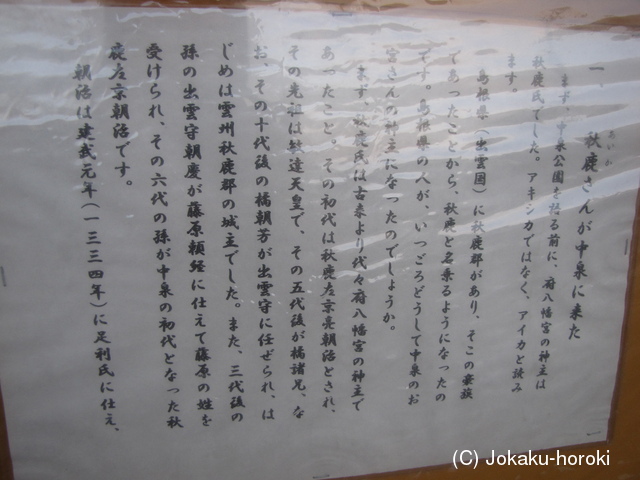 一、秋鹿さんが中泉に来た
あいか
まず、中泉公園を語る前に、府八幡宮の神主は
秋鹿氏でした。アキシカではなく、アイカと読み
ます。
島根県（出雲国）に秋鹿郡があり、そこの豪族
であったことから、秋鹿と名乗るようになったの
です。島根県の人が、いつごろどうして中泉のお
宮さんの神主になったのでしょうか。
まず、秋鹿氏は古来より代々府八幡宮の神主で
あったこと。その初代は秋鹿左京亮朝治とされ、
その先祖は敏達天皇で、その五代後が橘諸兄、な
お、その十代後の橘朝芳が出雲守に任ぜられ、は
じめは雲州秋鹿郡の城主でした。また、三代後の
孫の出雲守朝慶が藤原頼経に仕えて藤原の姓を
受けられ、その六代の孫が中泉の初代となった秋
鹿左京朝治です。
朝治は建武元年（一三三四年）に足利氏に仕え、
(C) Jokaku-horoki